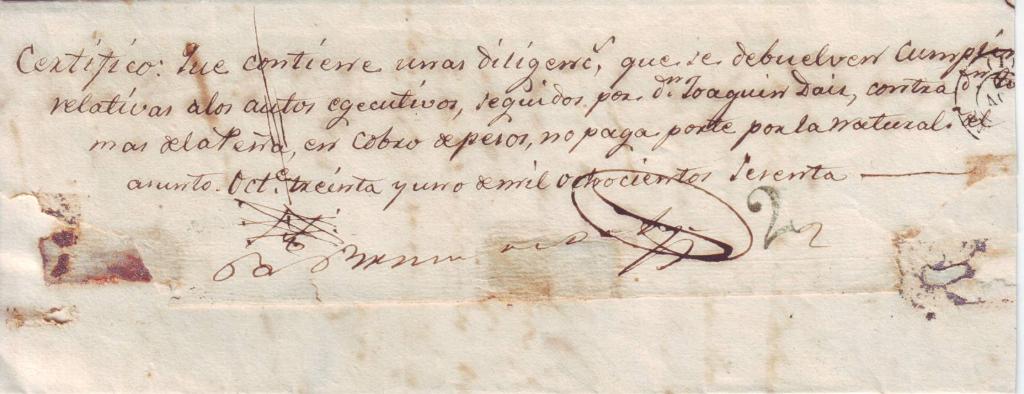 Certifico: Que contiene unas diligenc.ˢ, que se debuelven cumpli
relativas a los autos egecutivos, seguidos por d.ⁿ Joaquin Dais, contra d.ⁿ
mas de la Peña, en Cobro de pesos, no paga porte por la natural. del
asunto. Oct.ᵉ treinta y uno de mil ochocientos Sesenta
2 2